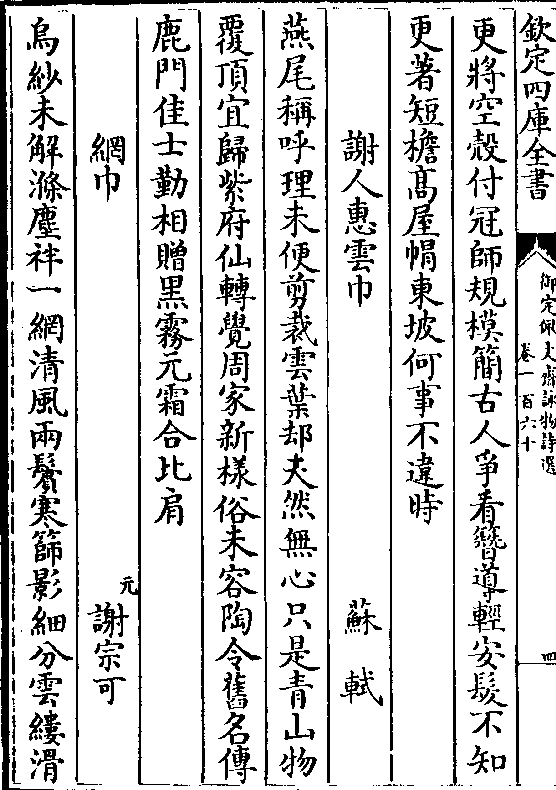 欽定四庫全書
御定佩文齋詠物詩選
卷一百六十
四
更將空殻付冠師規模簡古人爭看簪導輕安髮不知
更著短檐髙屋帽東坡何事不違時
謝人惠雲巾
蘇軾
燕尾稱呼理未便剪裁雲葉却天然無心只是青山物
覆頂宜歸紫府仙轉覺周家新様俗未容陶令舊名傳
鹿門佳士勤相贈黒霧元霜合比肩
網巾
元
謝宗可
烏紗未解滌塵袢一網清風兩鬢寒篩影細分雲縷滑